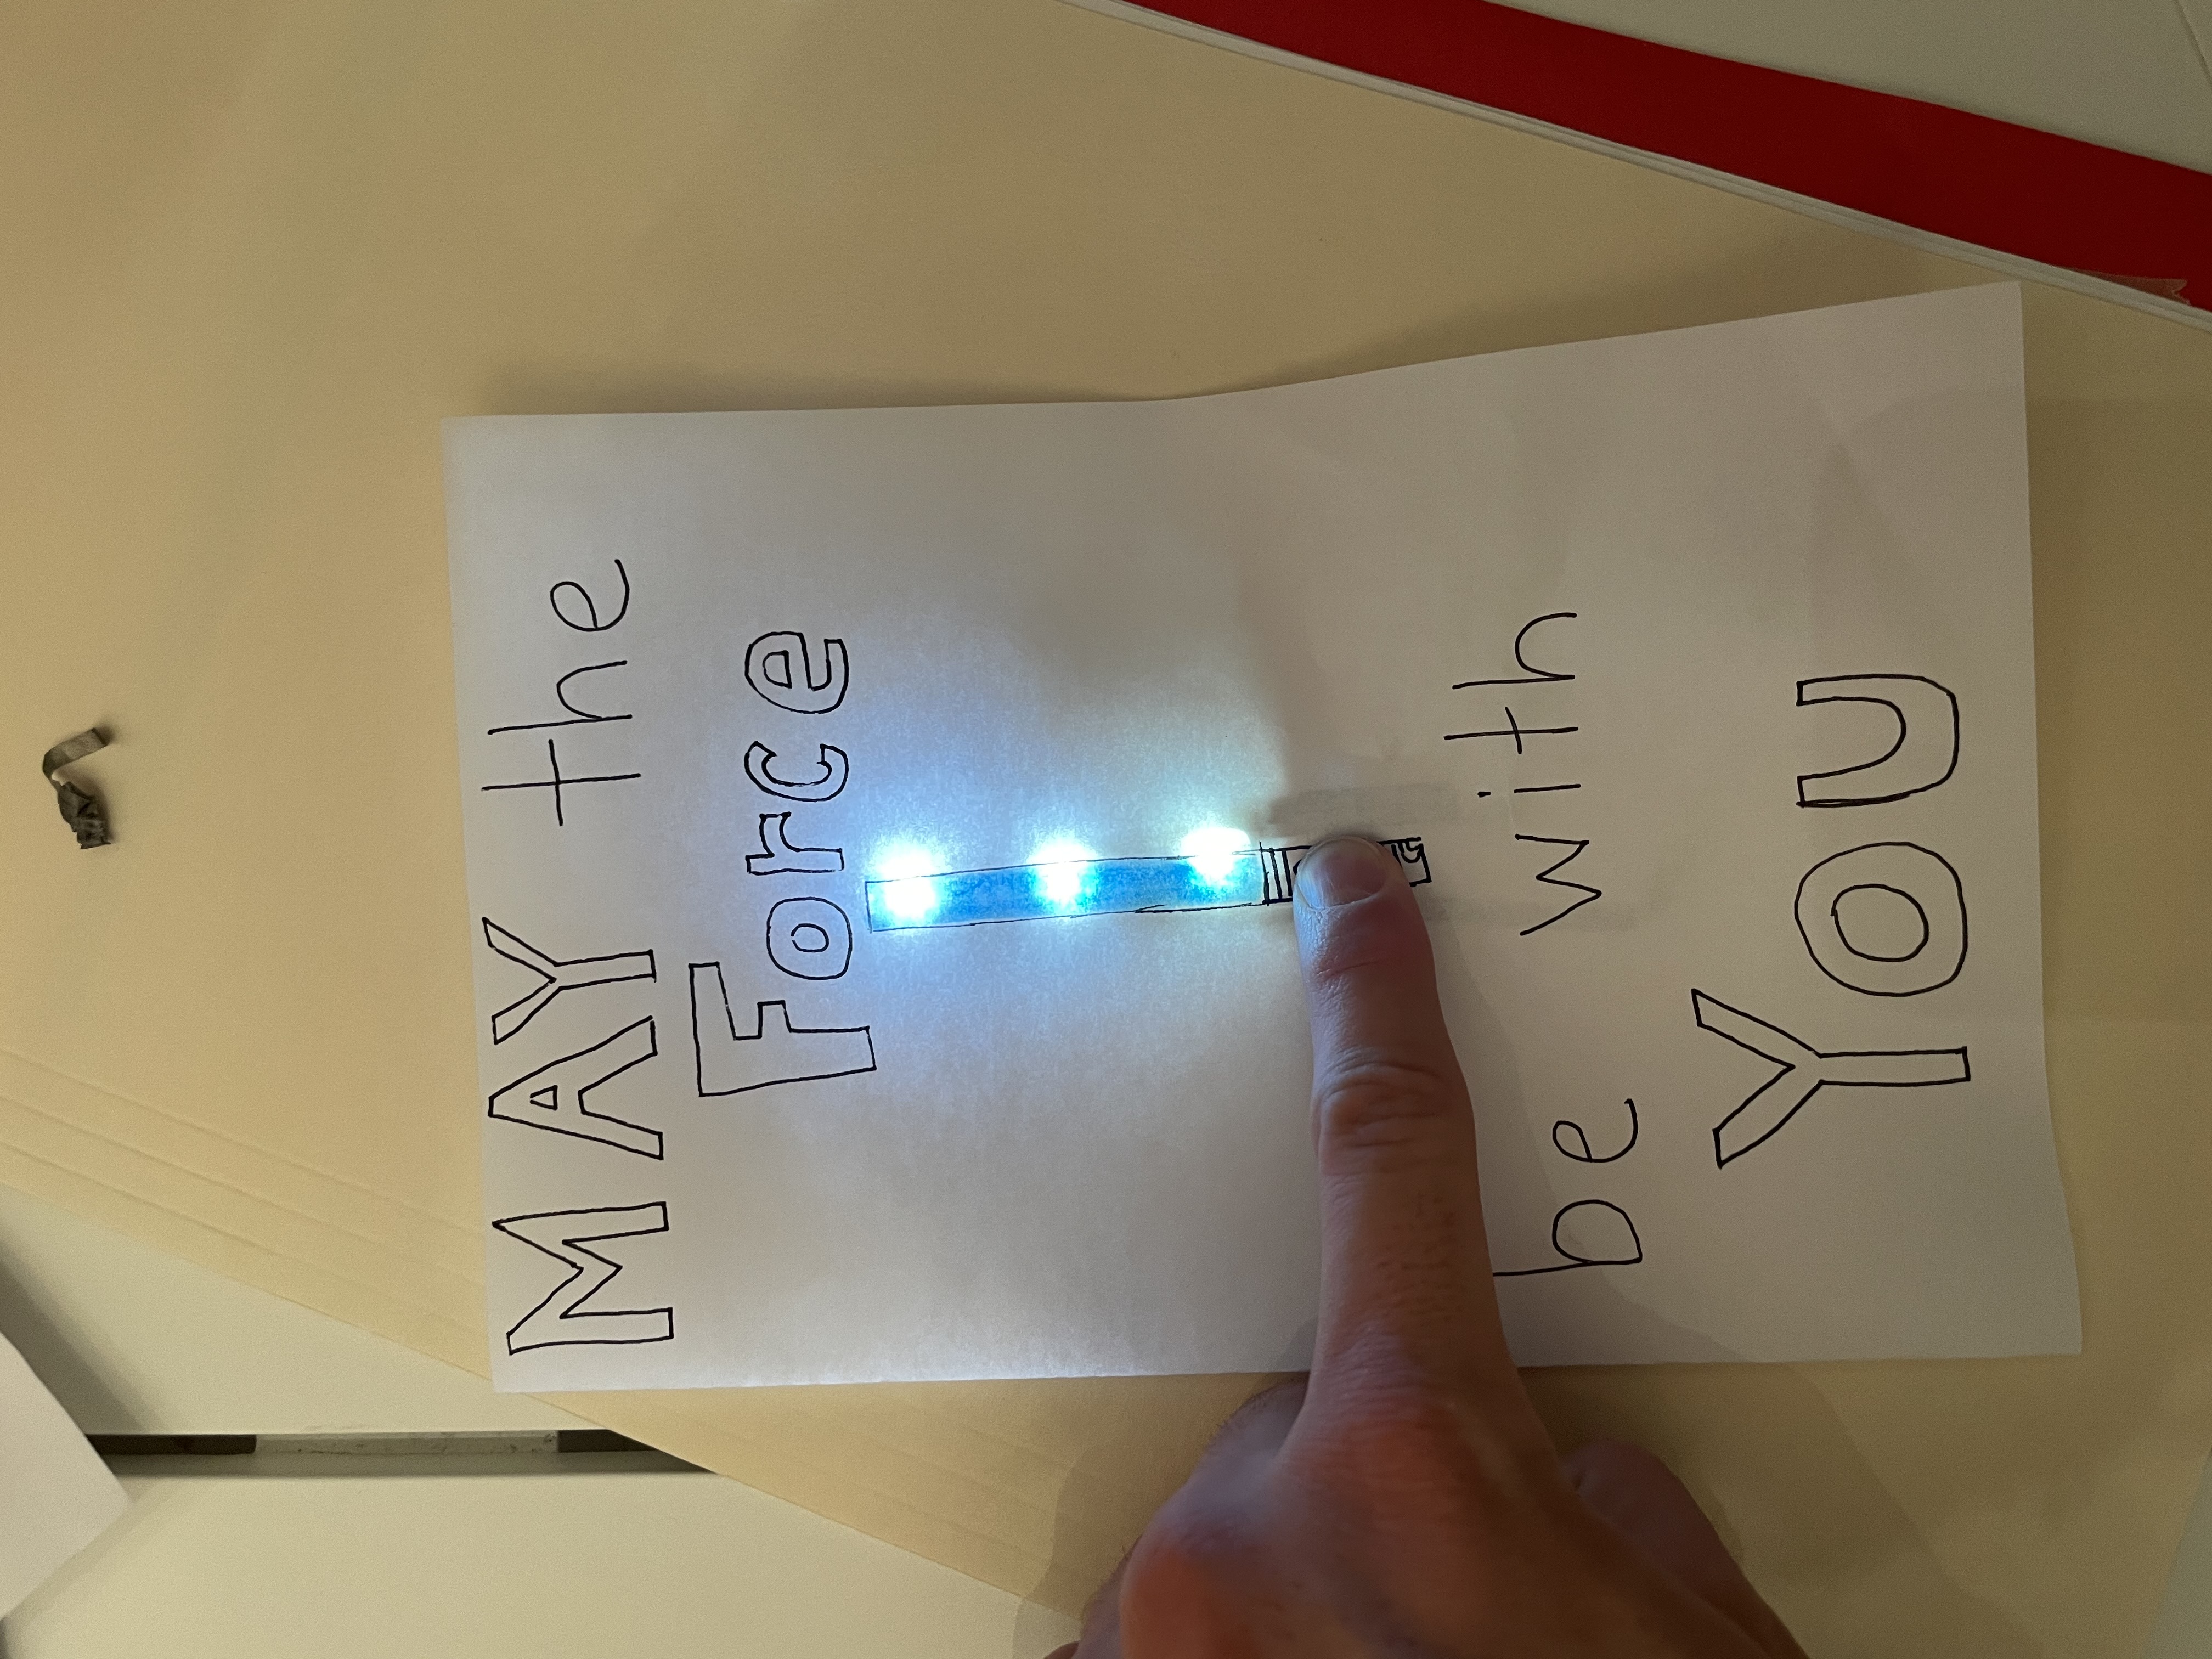 MAY the
Force
be with
You